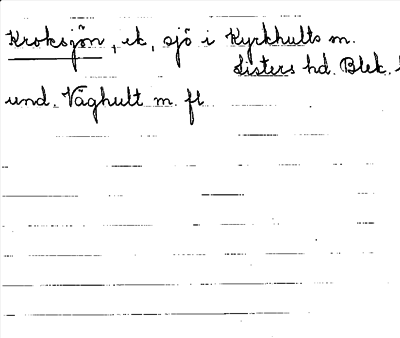 Kroksjön, ek, sjö i Kyrkhults m.
Listers hd. Blek.
und. Våghult m. fl.